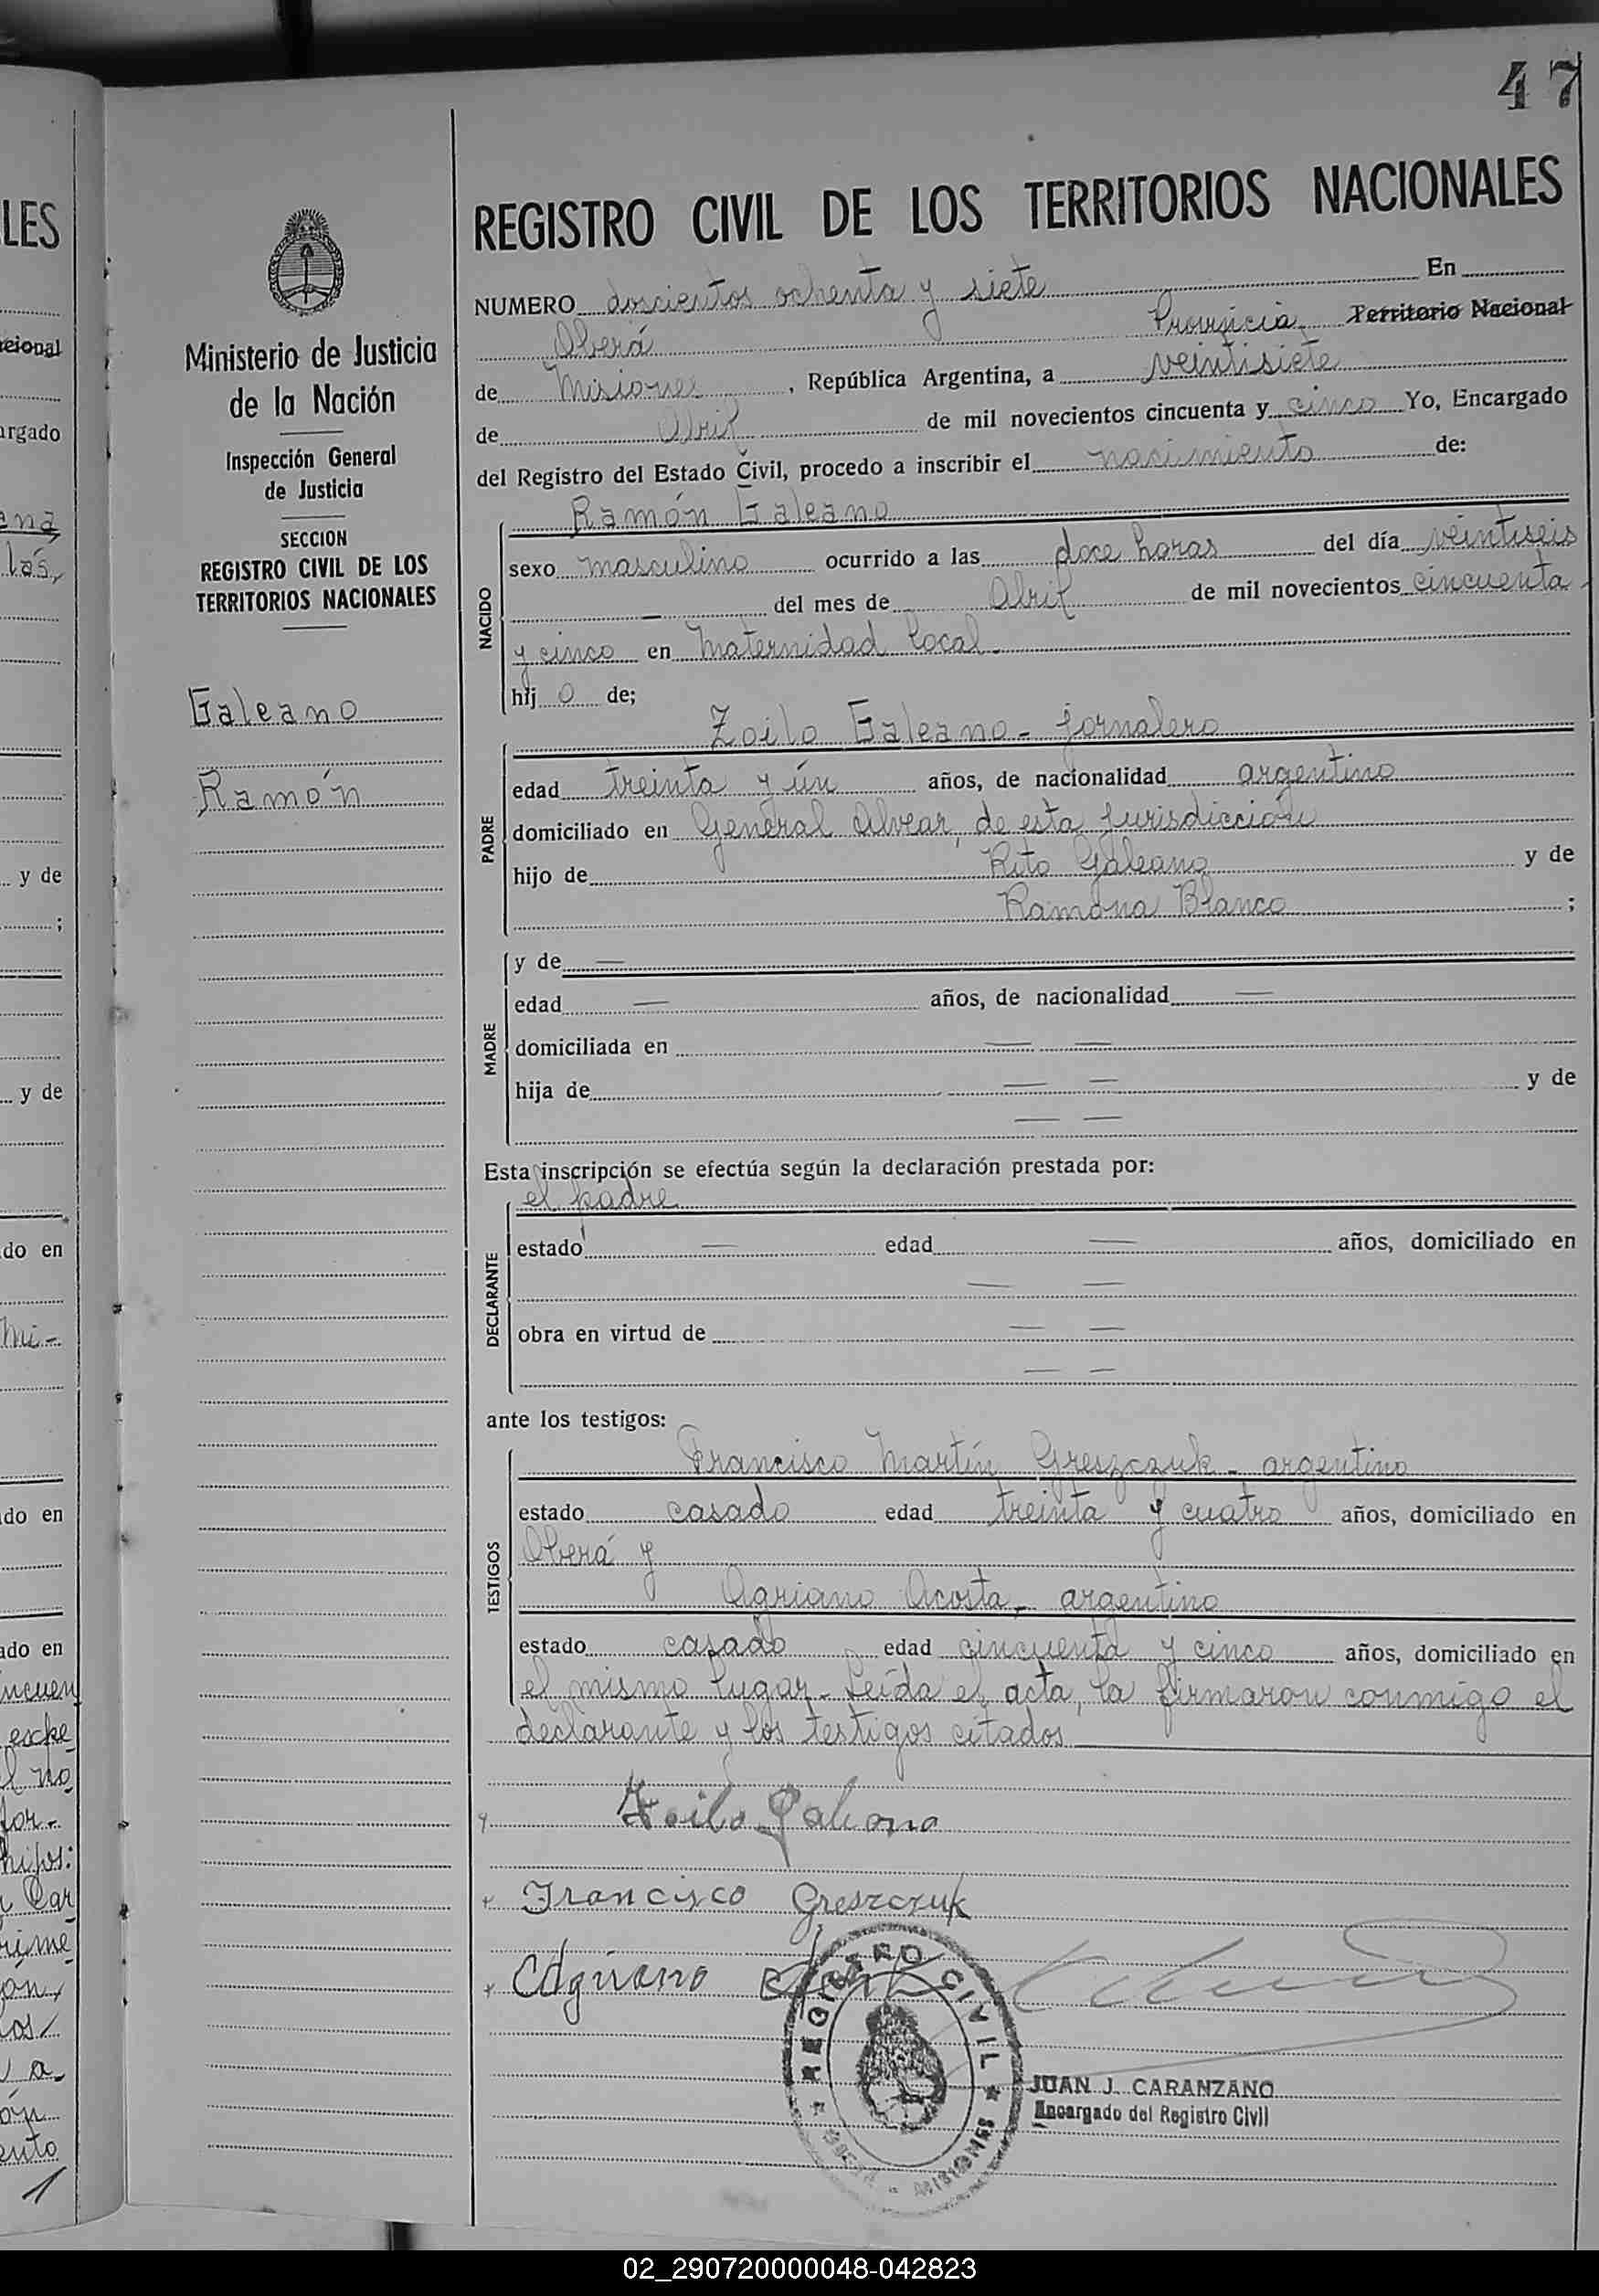 47
LES
cional
argado
ena
las,
y de
;
y de
do en
Mi-
do en
ado en
ncuen
esche
el no
for-
hijos:
Car
rime
on,
os/
a
ón
ento
1
Ministerio de Justicia
de la Nación
Inspección General
de Justicia
SECCION
REGISTRO CIVIL DE LOS
TERRITORIOS NACIONALES
Galeano
Ramón
REGISTRO CIVIL DE LOS TERRITORIOS NACIONALES
NUMERO doscientos ochenta y siete En
Oberá Provincia Territorio Nacional
de Misiones, República Argentina, a veintisiete
de Abril de mil novecientos cincuenta y cinco Yo, Encargado
del Registro del Estado Civil, procedo a inscribir el nacimiento de:
NACIDO
Ramón Galeano
sexo masculino ocurrido a las doce horas del día veintiseis
— del mes de Abril de mil novecientos cincuenta
y cinco en Maternidad local.
hij o de;
PADRE
Zoilo Galeano - jornalero
edad treinta y ún años, de nacionalidad argentino
domiciliado en General Alvear, de esta jurisdicción
hijo de Rito Galeano y de
Ramona Blanco ;
MADRE
y de —
edad — años, de nacionalidad —
domiciliada en — —
hija de — — y de
— —
Esta inscripción se efectúa según la declaración prestada por:
DECLARANTE
el padre
estado — edad — años, domiciliado en
— —
obra en virtud de — —
— —
ante los testigos:
TESTIGOS
Francisco Martín Greszczuk - argentino
estado casado edad treinta y cuatro años, domiciliado en
Oberá y
Agriano Acosta, - argentino
estado casado edad cincuenta y cinco años, domiciliado en
el mismo lugar. Leída el acta, la firmaron conmigo el
declarante y los testigos citados
Zoilo Galeano
Francisco Greszczuk
Agriano
REGISTRO CIVIL
OBERA - MISIONES
JUAN J. CARANZANO
Encargado del Registro Civil
02_290720000048-042823